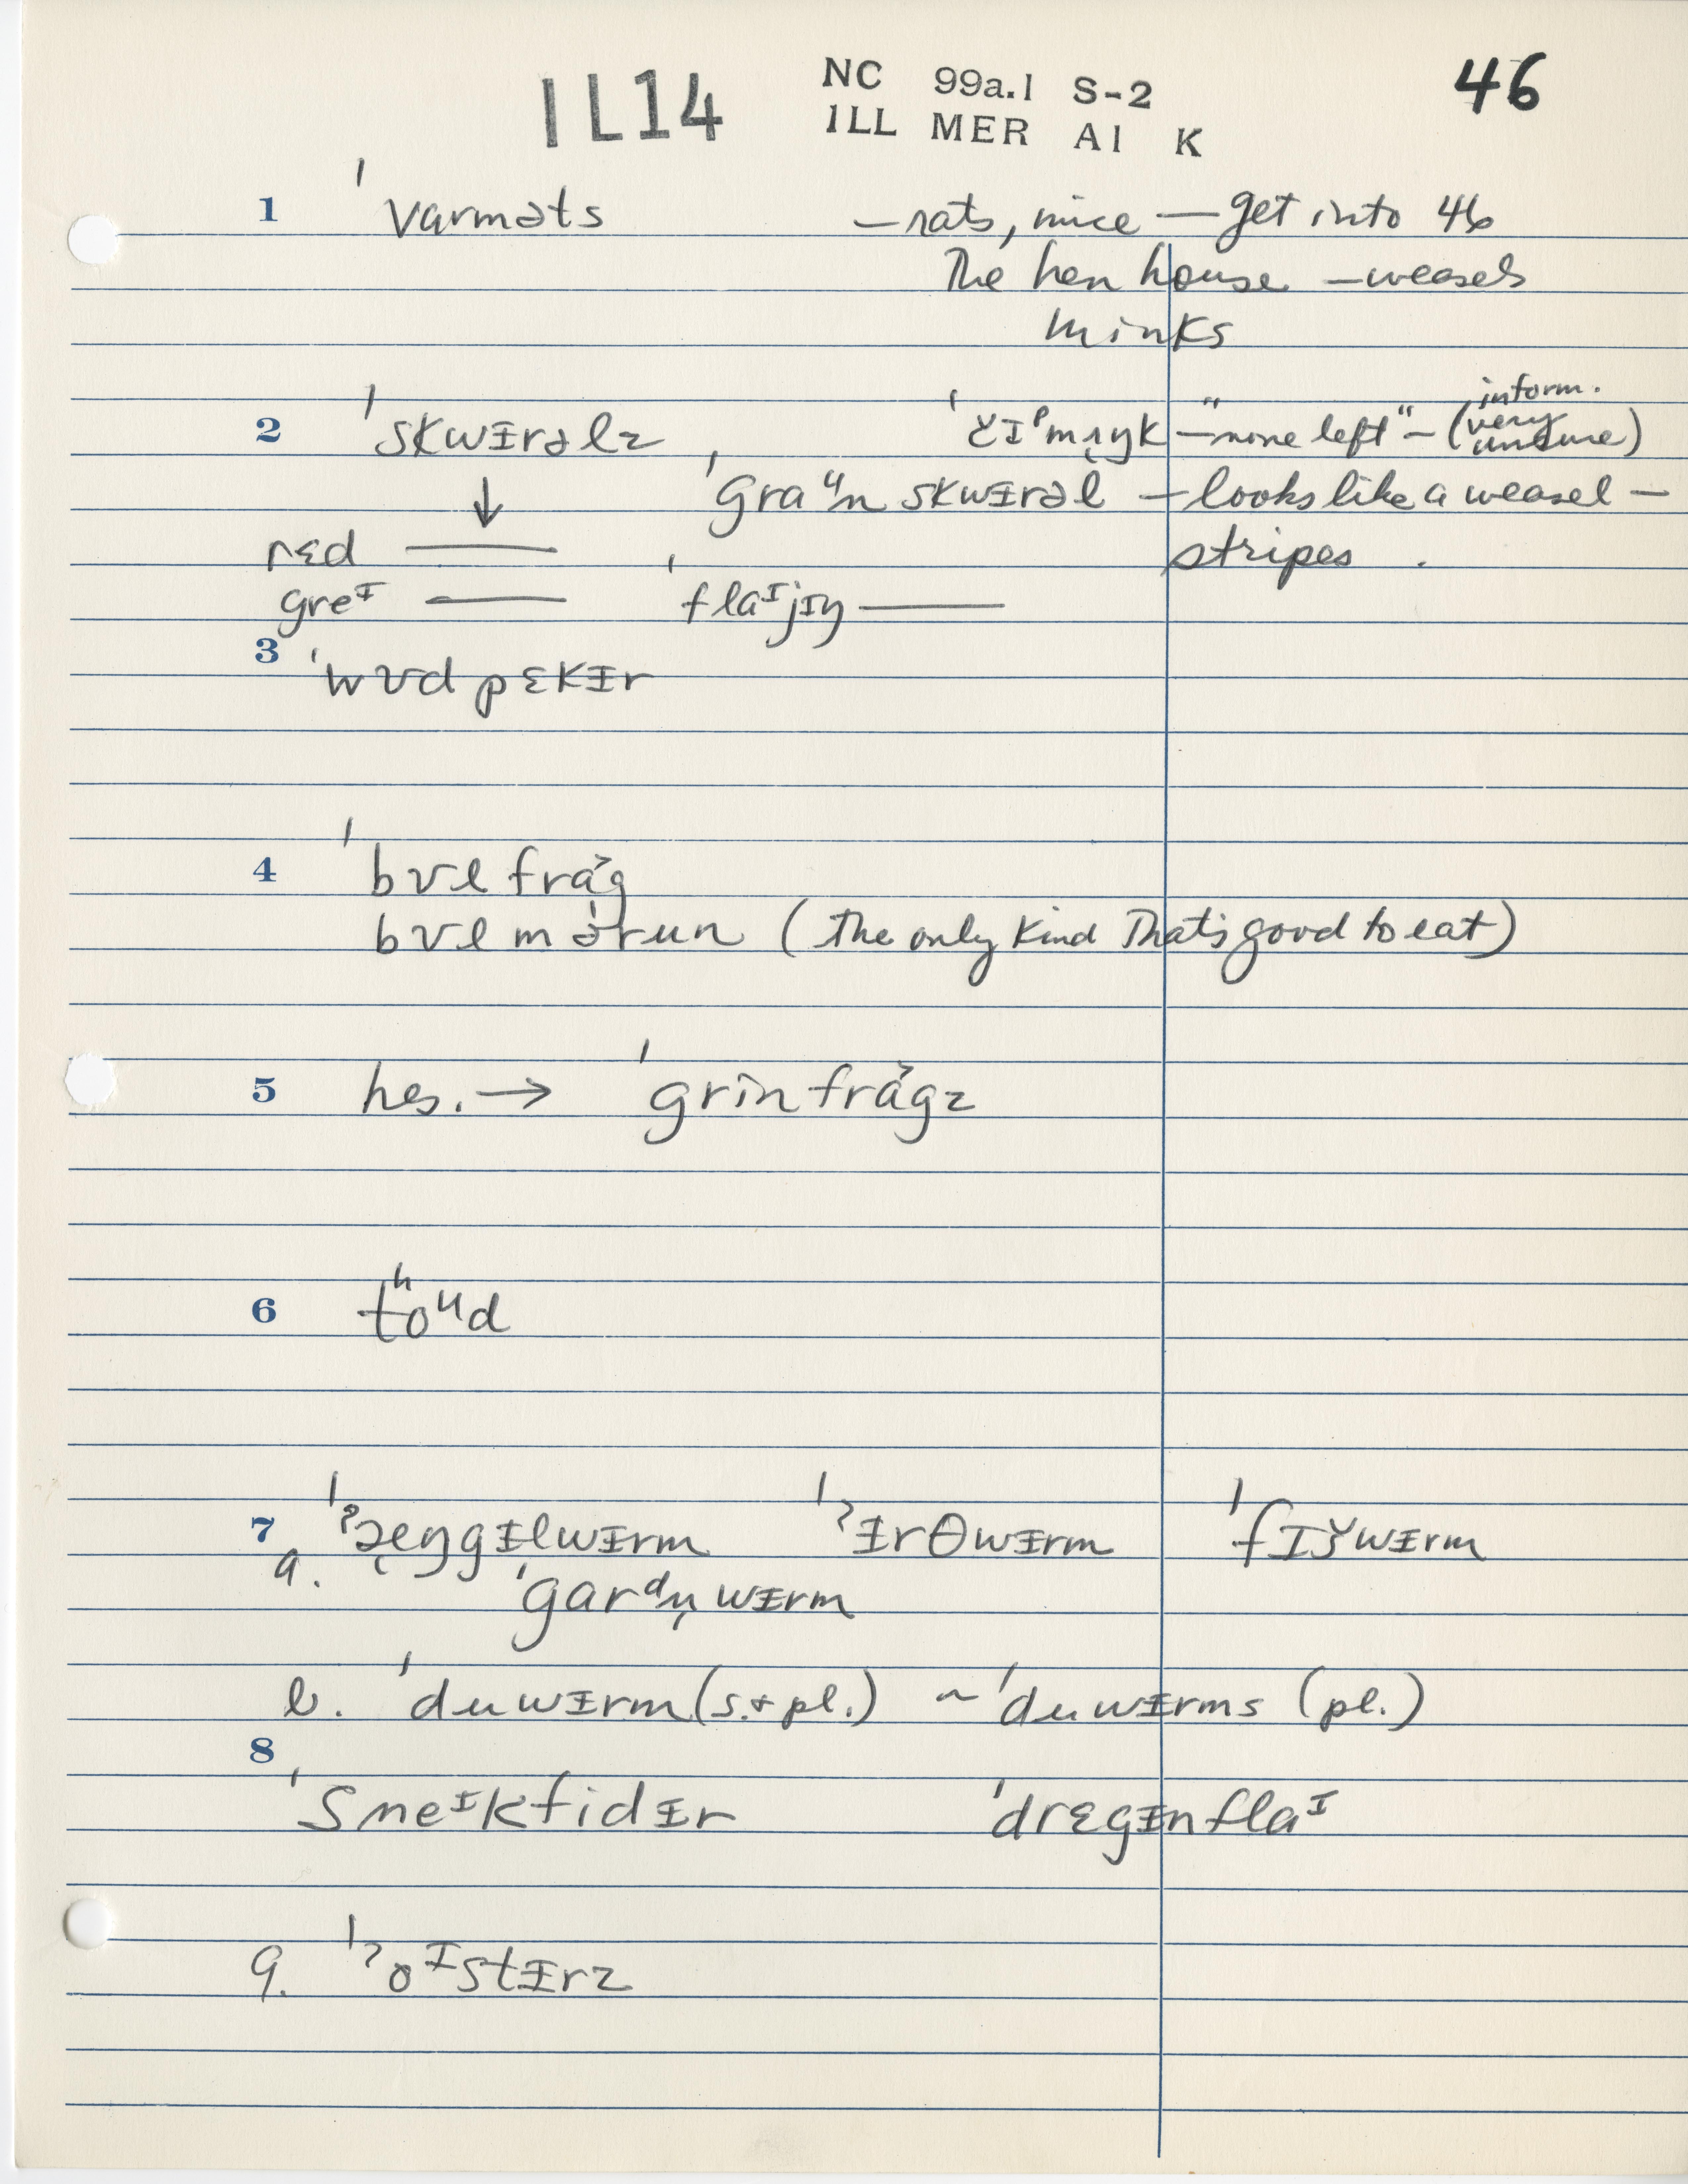 IL14 NC 99a.1 S-2 46
ILL MER A1 K
1 ˈvarməts —rats, mice — get into 46
the hen house —weasels
minks
2 ˈskwᵻrəlz, ˈčɪᵖmʌŋk — "none left" — (inform. very unsure)
↓ ˈgraᵘn skwᵻrəl — looks like a weasel —
rɛd —— stripes.
greᶦ —— ˈflaᶦjɪŋ ——
3 ˈwʊdpɛkᵻr
4 ˈbʊlfrɑ̌g
bʊlmərun (the only kind that's good to eat)
5 hes. → ˈgrin frɑ̌gz
6 tʰoᵘd
7 ˈʔæŋgᵻlwᵻrm ˈʔᵻrθwᵻrm ˈfɪšwᵻrm
a. ˈgarᵈn̩ wᵻrm
b. ˈduwᵻrm (s. + pl.) ~ ˈduwᵻrms (pl.)
8 ˈsneᶦkfidᵻr ˈdrɛgᵻnflaᶦ
9. ˈʔoᶦstᵻrz